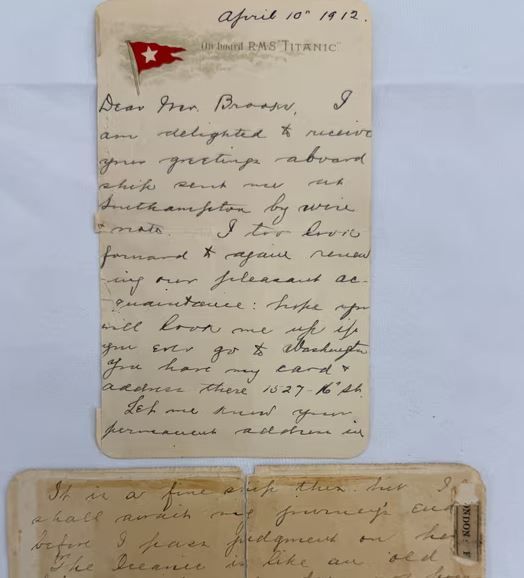 April 10" 1912.
On board R.M.S. "TITANIC"
Dear Mr. I
am delighted to receive
your greetings aboard
ship sent me at
Southampton by wire
& note. I too look
forward to again renew
ing our pleasant ac-
quaintance: hope you
will look me up if
you ever go to Washington
You have my card &
address there 1527-16" St.
Let me know your
permanent address in
It is a fine ship this but I
shall await my journeys end
before I pass judgment on her
The Oceanic is like an old